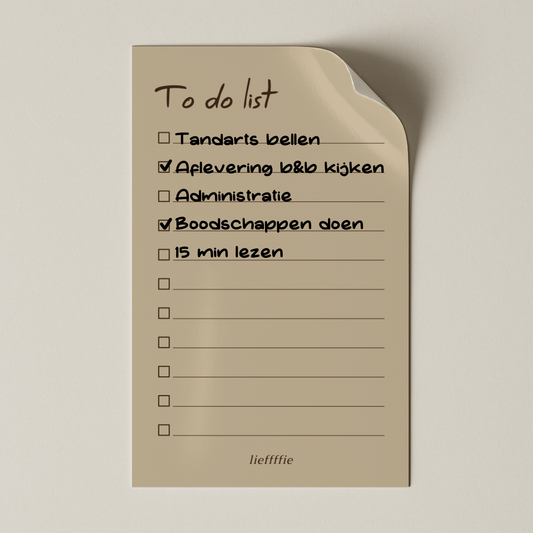 To do list
Tandarts bellen
Aflevering b&b kijken
Administratie
Boodschappen doen
15 min lezen
lieffffie